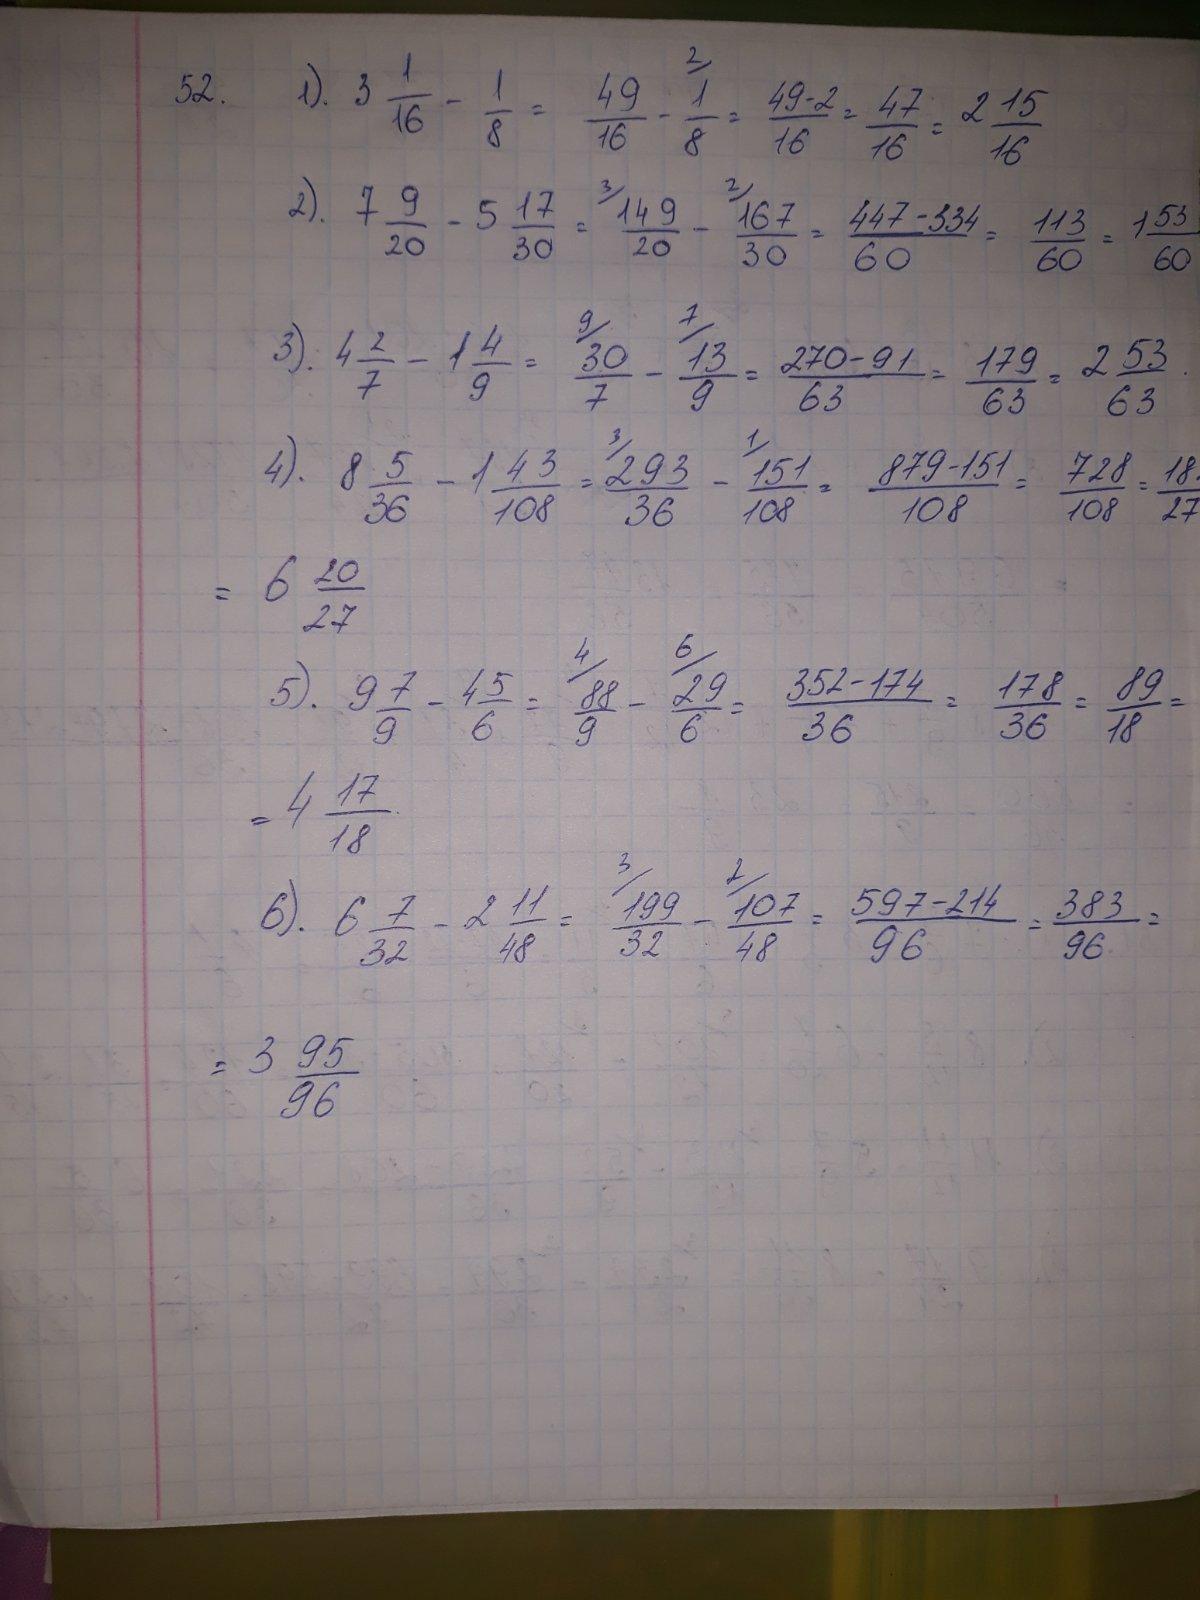 52. 1). 3 1/16 - 1/8 = 49/16 - 2/ 1/8 = 49-2/16 = 47/16 = 2 15/16
2). 7 9/20 - 5 17/30 = 3/ 149/20 - 2/ 167/30 = 447-334/60 = 113/60 = 1 53/60
3). 4 2/7 - 1 4/9 = 9/ 30/7 - 7/ 13/9 = 270-91/63 = 179/63 = 2 53/63.
4). 8 5/36 - 1 43/108 = 3/ 293/36 - 1/ 151/108 = 879-151/108 = 728/108 = 18/27
= 6 20/27
5). 9 7/9 - 4 5/6 = 4/ 88/9 - 6/ 29/6 = 352-174/36 = 178/36 = 89/18 =
= 4 17/18.
6). 6 7/32 - 2 11/48 = 3/ 199/32 - 2/ 107/48 = 597-214/96 = 383/96 =
= 3 95/96